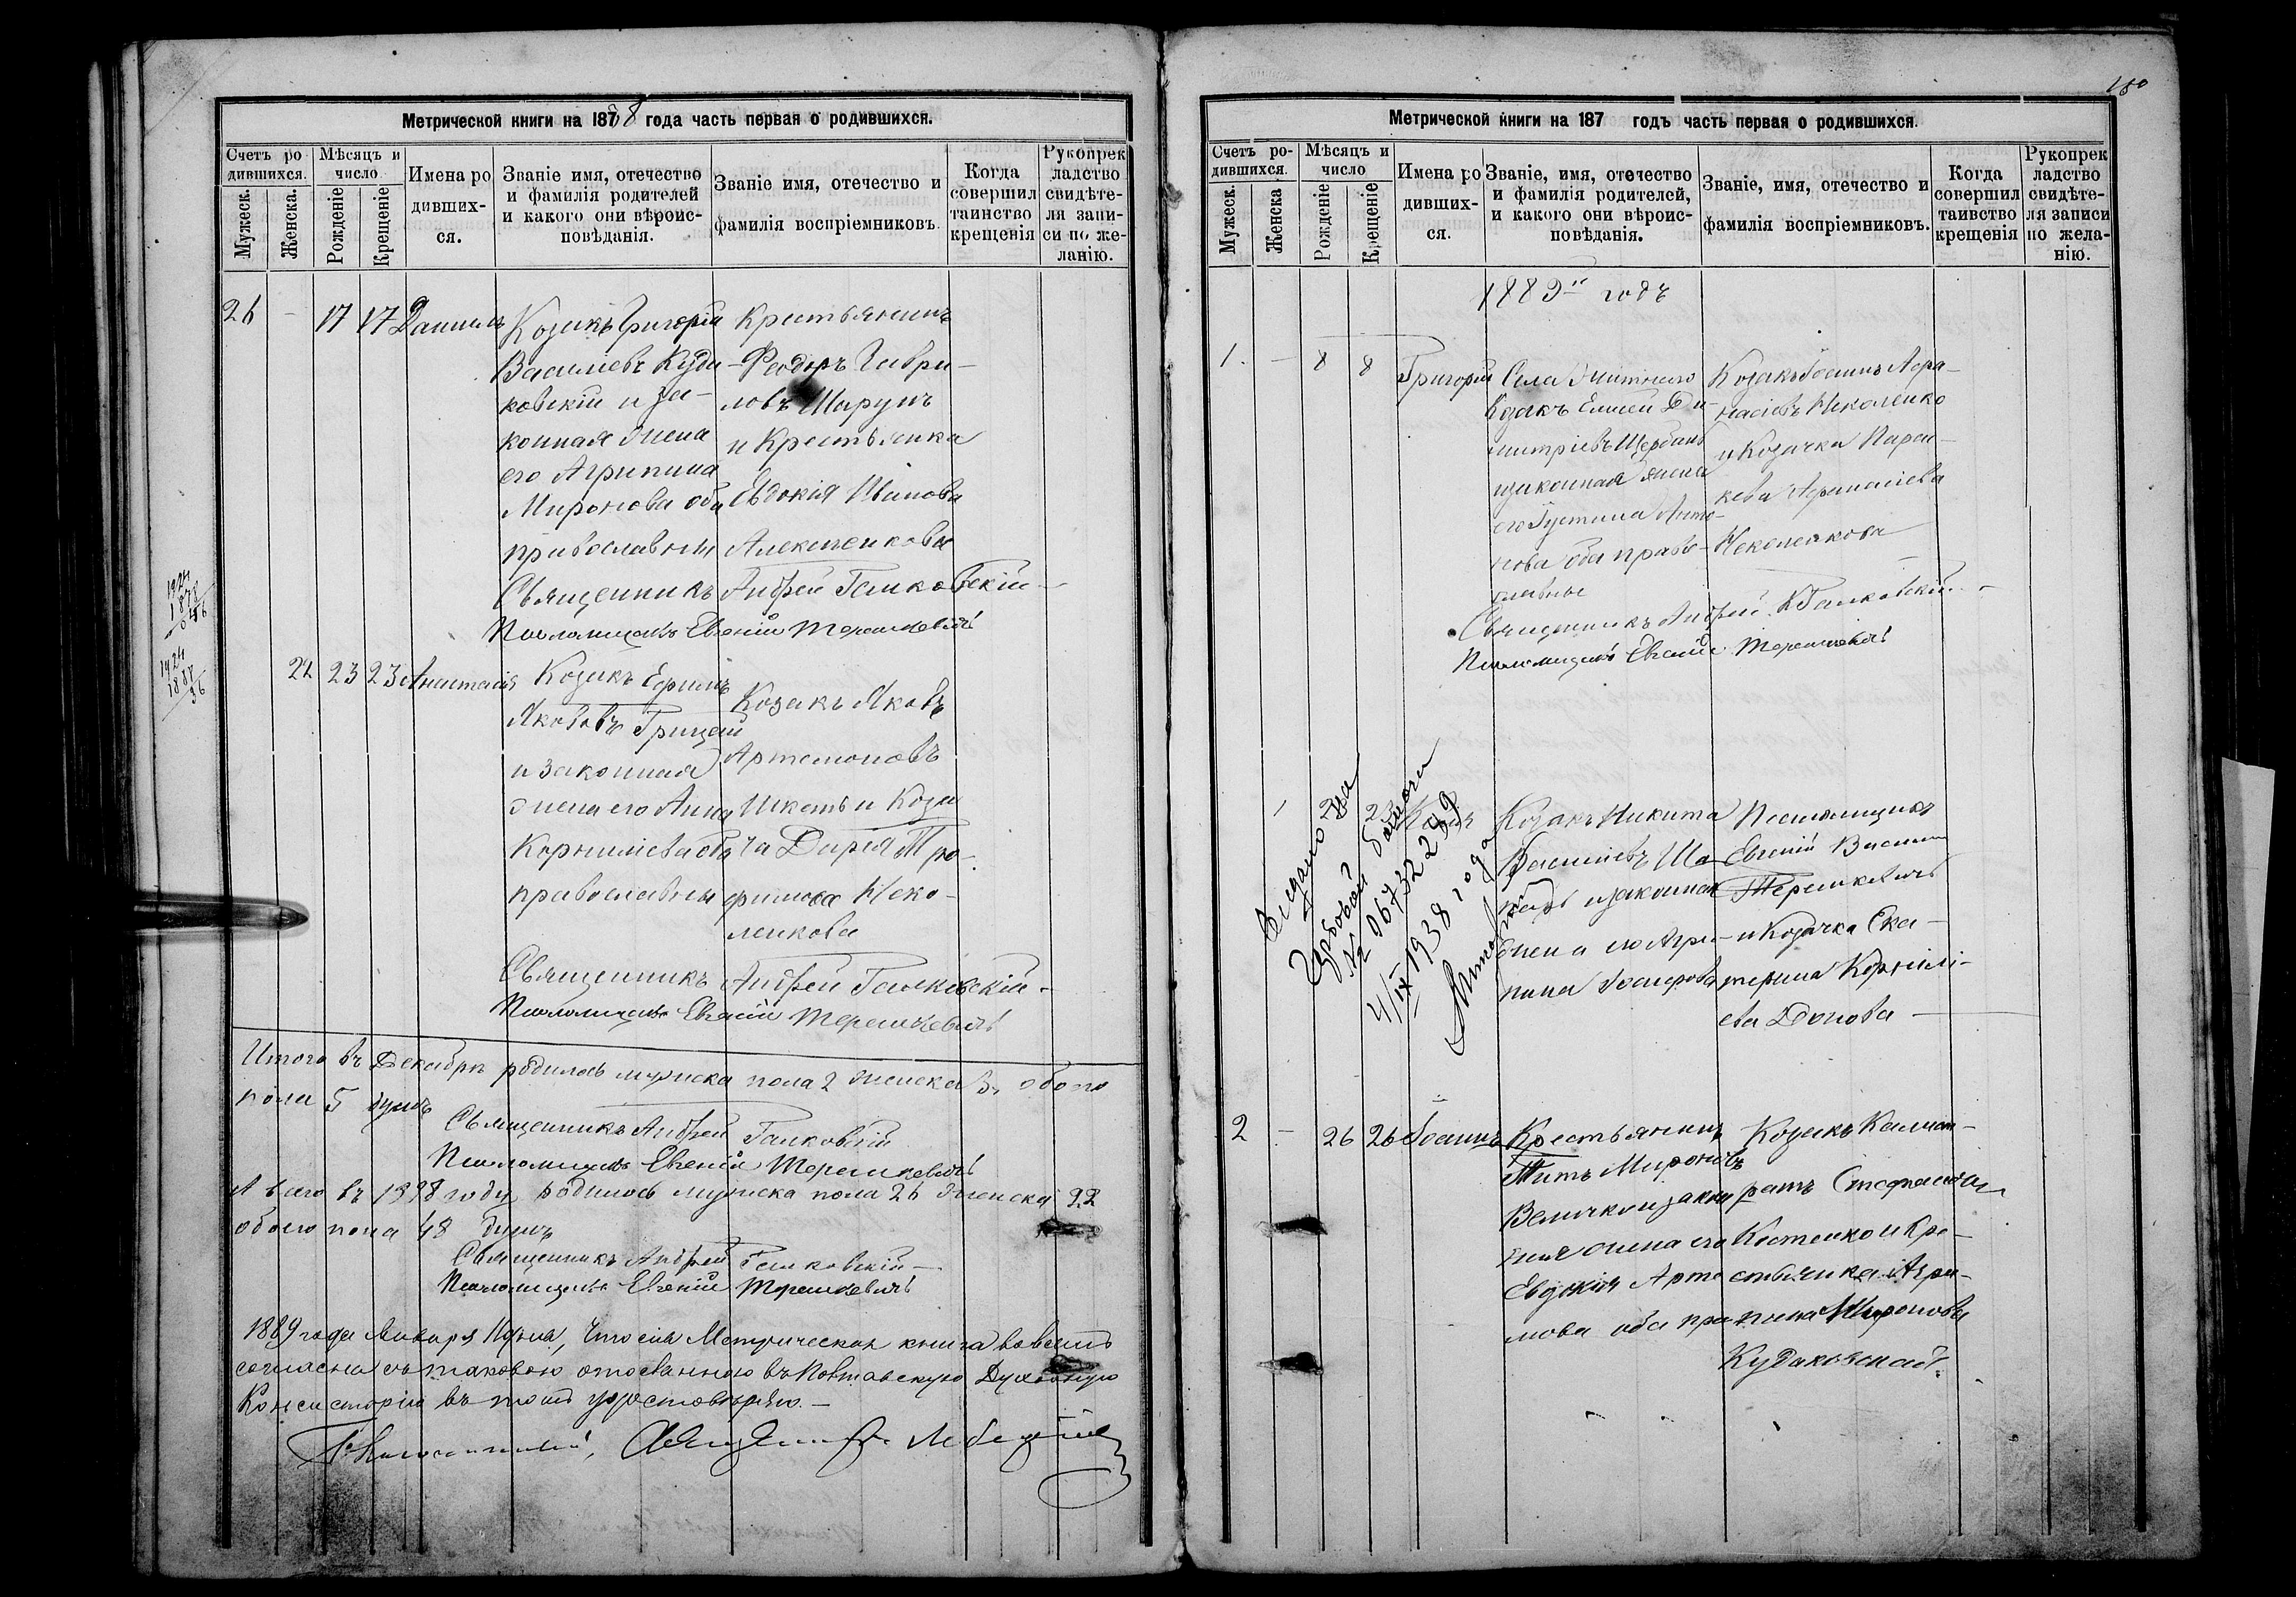 Метрической книги на 1878 8 года часть первая о родившихся.
Счетъ родившихся.
Мѣсяцъ и число
Мужеск.
Женска.
Рожденіе
Крещеніе
Имена родивших-
ся.
Званіе имя, отечество
и фамилія родителей
и какого они вѣроис-
повѣданія.
Званіе имя, отечество и
фамилія воспріемниковъ.
Когда
совершил
таинство
крещенія
Рукопрек
ладство
свидѣте-
ля запи-
си по же-
ланію.
26 - 17 17 Даниилъ
Козакъ Григорій
Василіевъ Куда
ковскій и за-
конная жена
его Агрипина
Миронова оба
православны
Крестьянинъ
Феодоръ Гаври-
ловъ Шарунъ
и Крестьянка
Евдокія Иванова
Алексенкова
Священникъ Андрей Галковскій
Псаломщикъ Евгеній Терешкевичъ
1924
1878
046
1924
1888
36
22 23 23 Анастасія
Козакъ Ефимъ
Яковъ Грицай
и законная
жена его Анна
Корниліева оба
православны
Козакъ Яковъ
Артемоновъ
Шкеть и Коза
ча Дарія Тро-
фимова Неко-
ленкова
Священникъ Андрей Галковскій
Псаломщикъ Евгеній Терешкевичъ
Итого въ Декабрѣ родилось мужска пола 2 женска 3, обоего
пола 5 душъ
Священникъ Андрей Галковскій
Псаломщикъ Евгеній Терешкевичъ
А всего въ 1888 году родилось мужска пола 26 женска 22
обоего пола 48 душъ
Священникъ Андрей Галковскій
Псаломщикъ Евгеній Терешкевичъ
1889 года Января дня, что сія Метрическая книга во всемъ
согласна съ таковою отосланною въ Полтавскую Духовную
Консисторію въ томъ удостовѣряю.
180
Метрической книги на 187 годъ часть первая о родившихся.
Счетъ ро-
дившихся.
Мѣсяцъ и
число
Мужеск.
Женска
Рожденіе
Крещеніе
Имена ро
дивших-
ся.
Званіе, имя, отечество
и фамилія родителей,
и какого они вѣроис-
повѣданія.
Званіе, имя, отечество и
фамилія воспріемниковъ.
Когда
совершил
таивство
крещенія
Рукопрек
ладство
свидѣте-
ля записи
по жела-
нію.
1889й годъ
1. - 8 8 Григорій
Села Житного
козакъ Елисей Ди-
митріевъ Щербань
и законная жена
его Іустина Анто-
нова оба право-
славные
Козакъ Іоаннъ Афа-
насіевъ Неколенко
и Козачка Парас-
кева Афанасіева
Неколенкова
Священникъ Андрей Галковскій
Псаломщикъ Евгеній Терешкевичъ
Гербовой
№ 0673228
4/IX 1938 года
1
Козакъ Никита
Василіевъ Ша
и законная
жена его Агри-
пина
Псаломщикъ
Евгеній Васил
Терешкевичъ
и Козачка Ека-
терина Корнилі-
ева Донова
2 - 26 26 Іоаннъ
Крестьянинъ
Титъ Мироновъ
Величко и закон
ная жена его
Евдокія Арте
мова оба пра
Козакъ Калист-
ратъ Стефановъ
Костенко и Кре-
стьянка Агри-
пина Миронова
Кудаковская